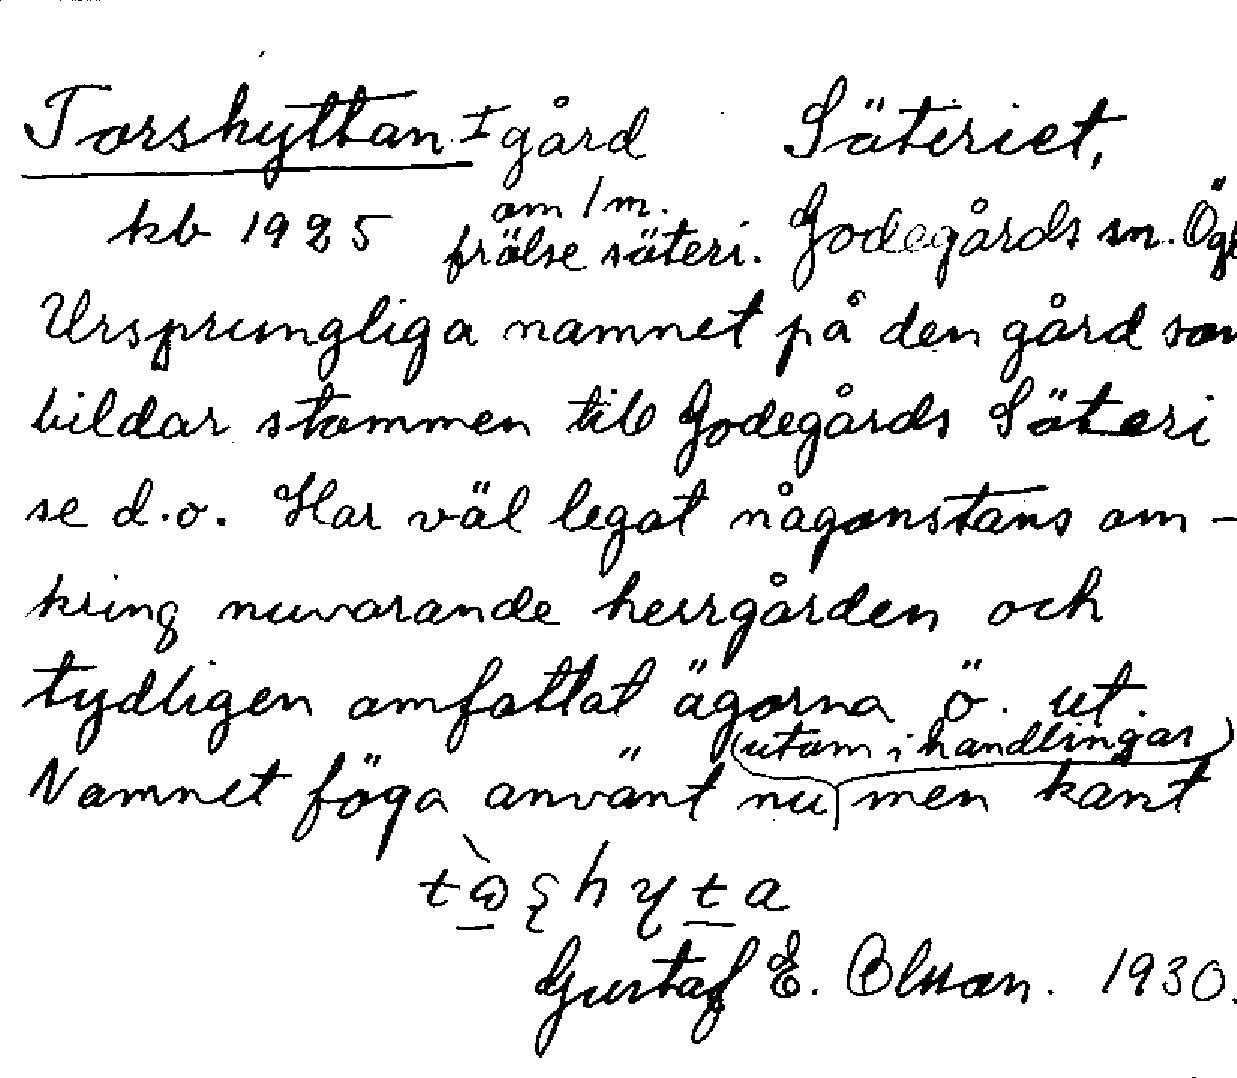 Torshyttan ± gård Säteriet,
kb 1925 om 1 m. frälse säteri. Godegårds sn. Ögl
Ursprungliga namnet på den gård som
bildar stommen till Godegårds Säteri
se d.o. Har väl legat någonstans om-
kring nuvarande herrgården och
tydligen omfattat ägorna ö. ut.
(utom i handlingar)
Namnet föga använt nu men känt
Gustaf E. Olsson. 1930.